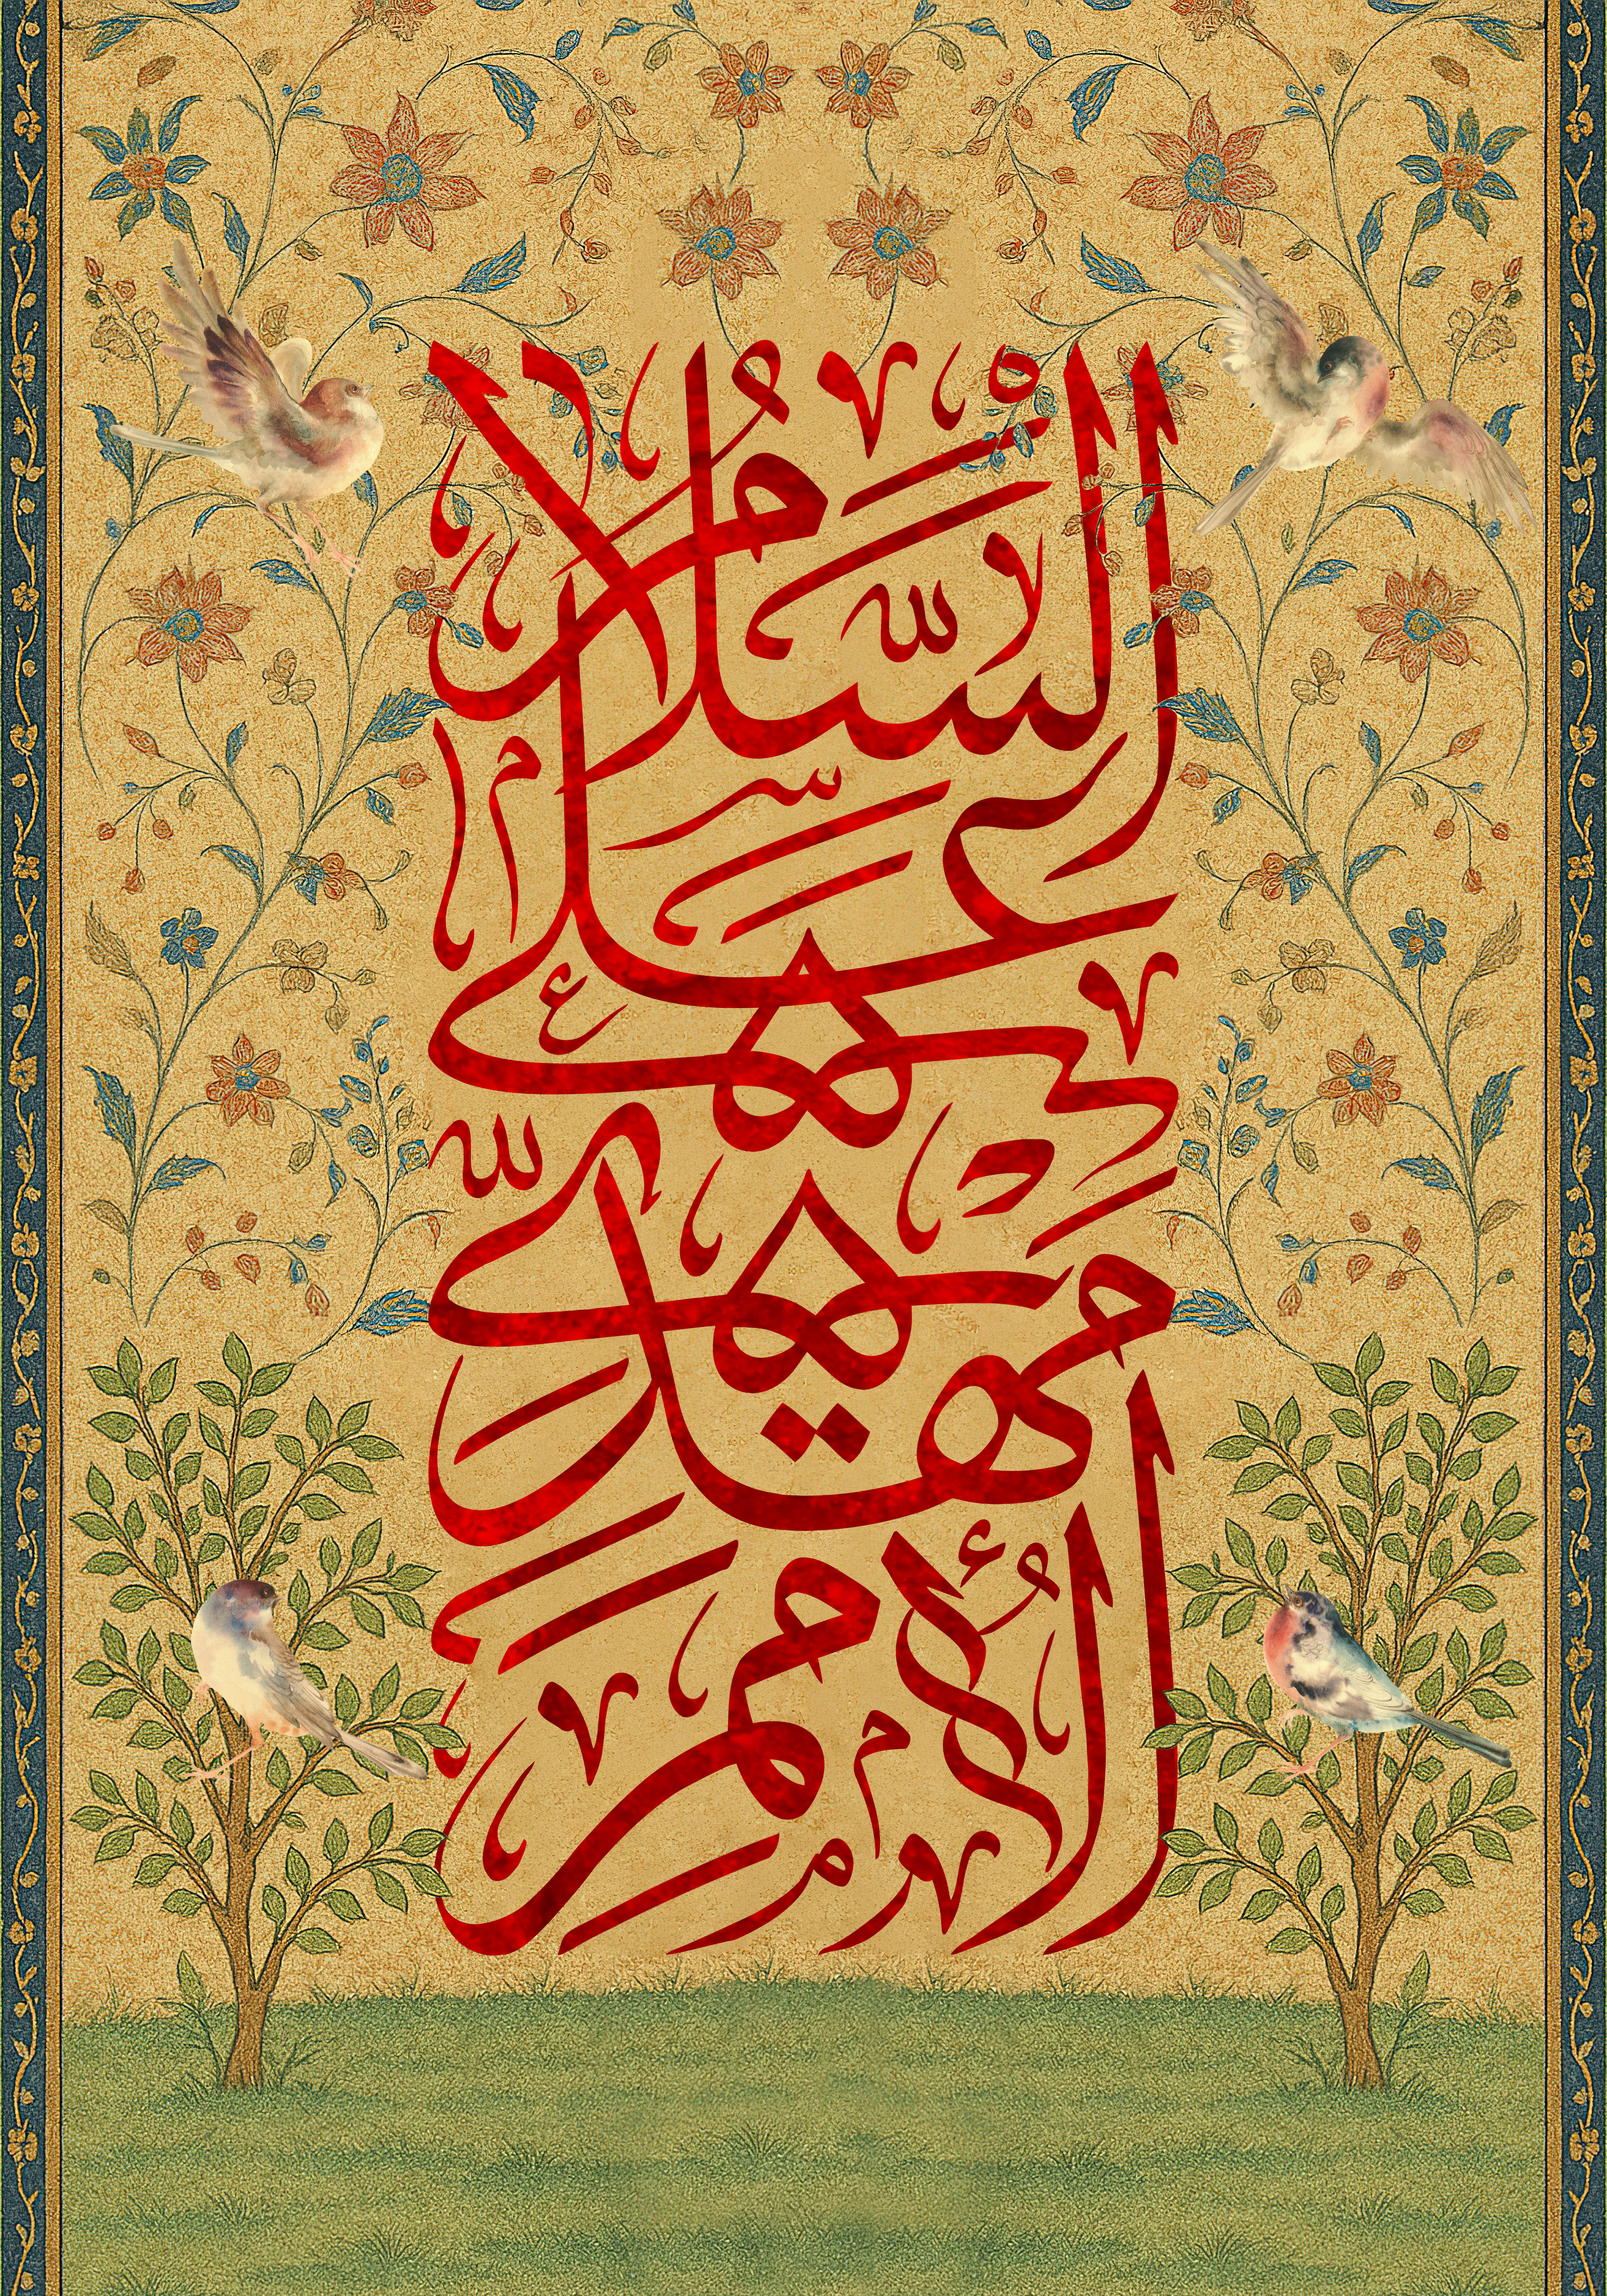 السَّلامُ
عَلى
مَهديِّ
الأُمَمِ